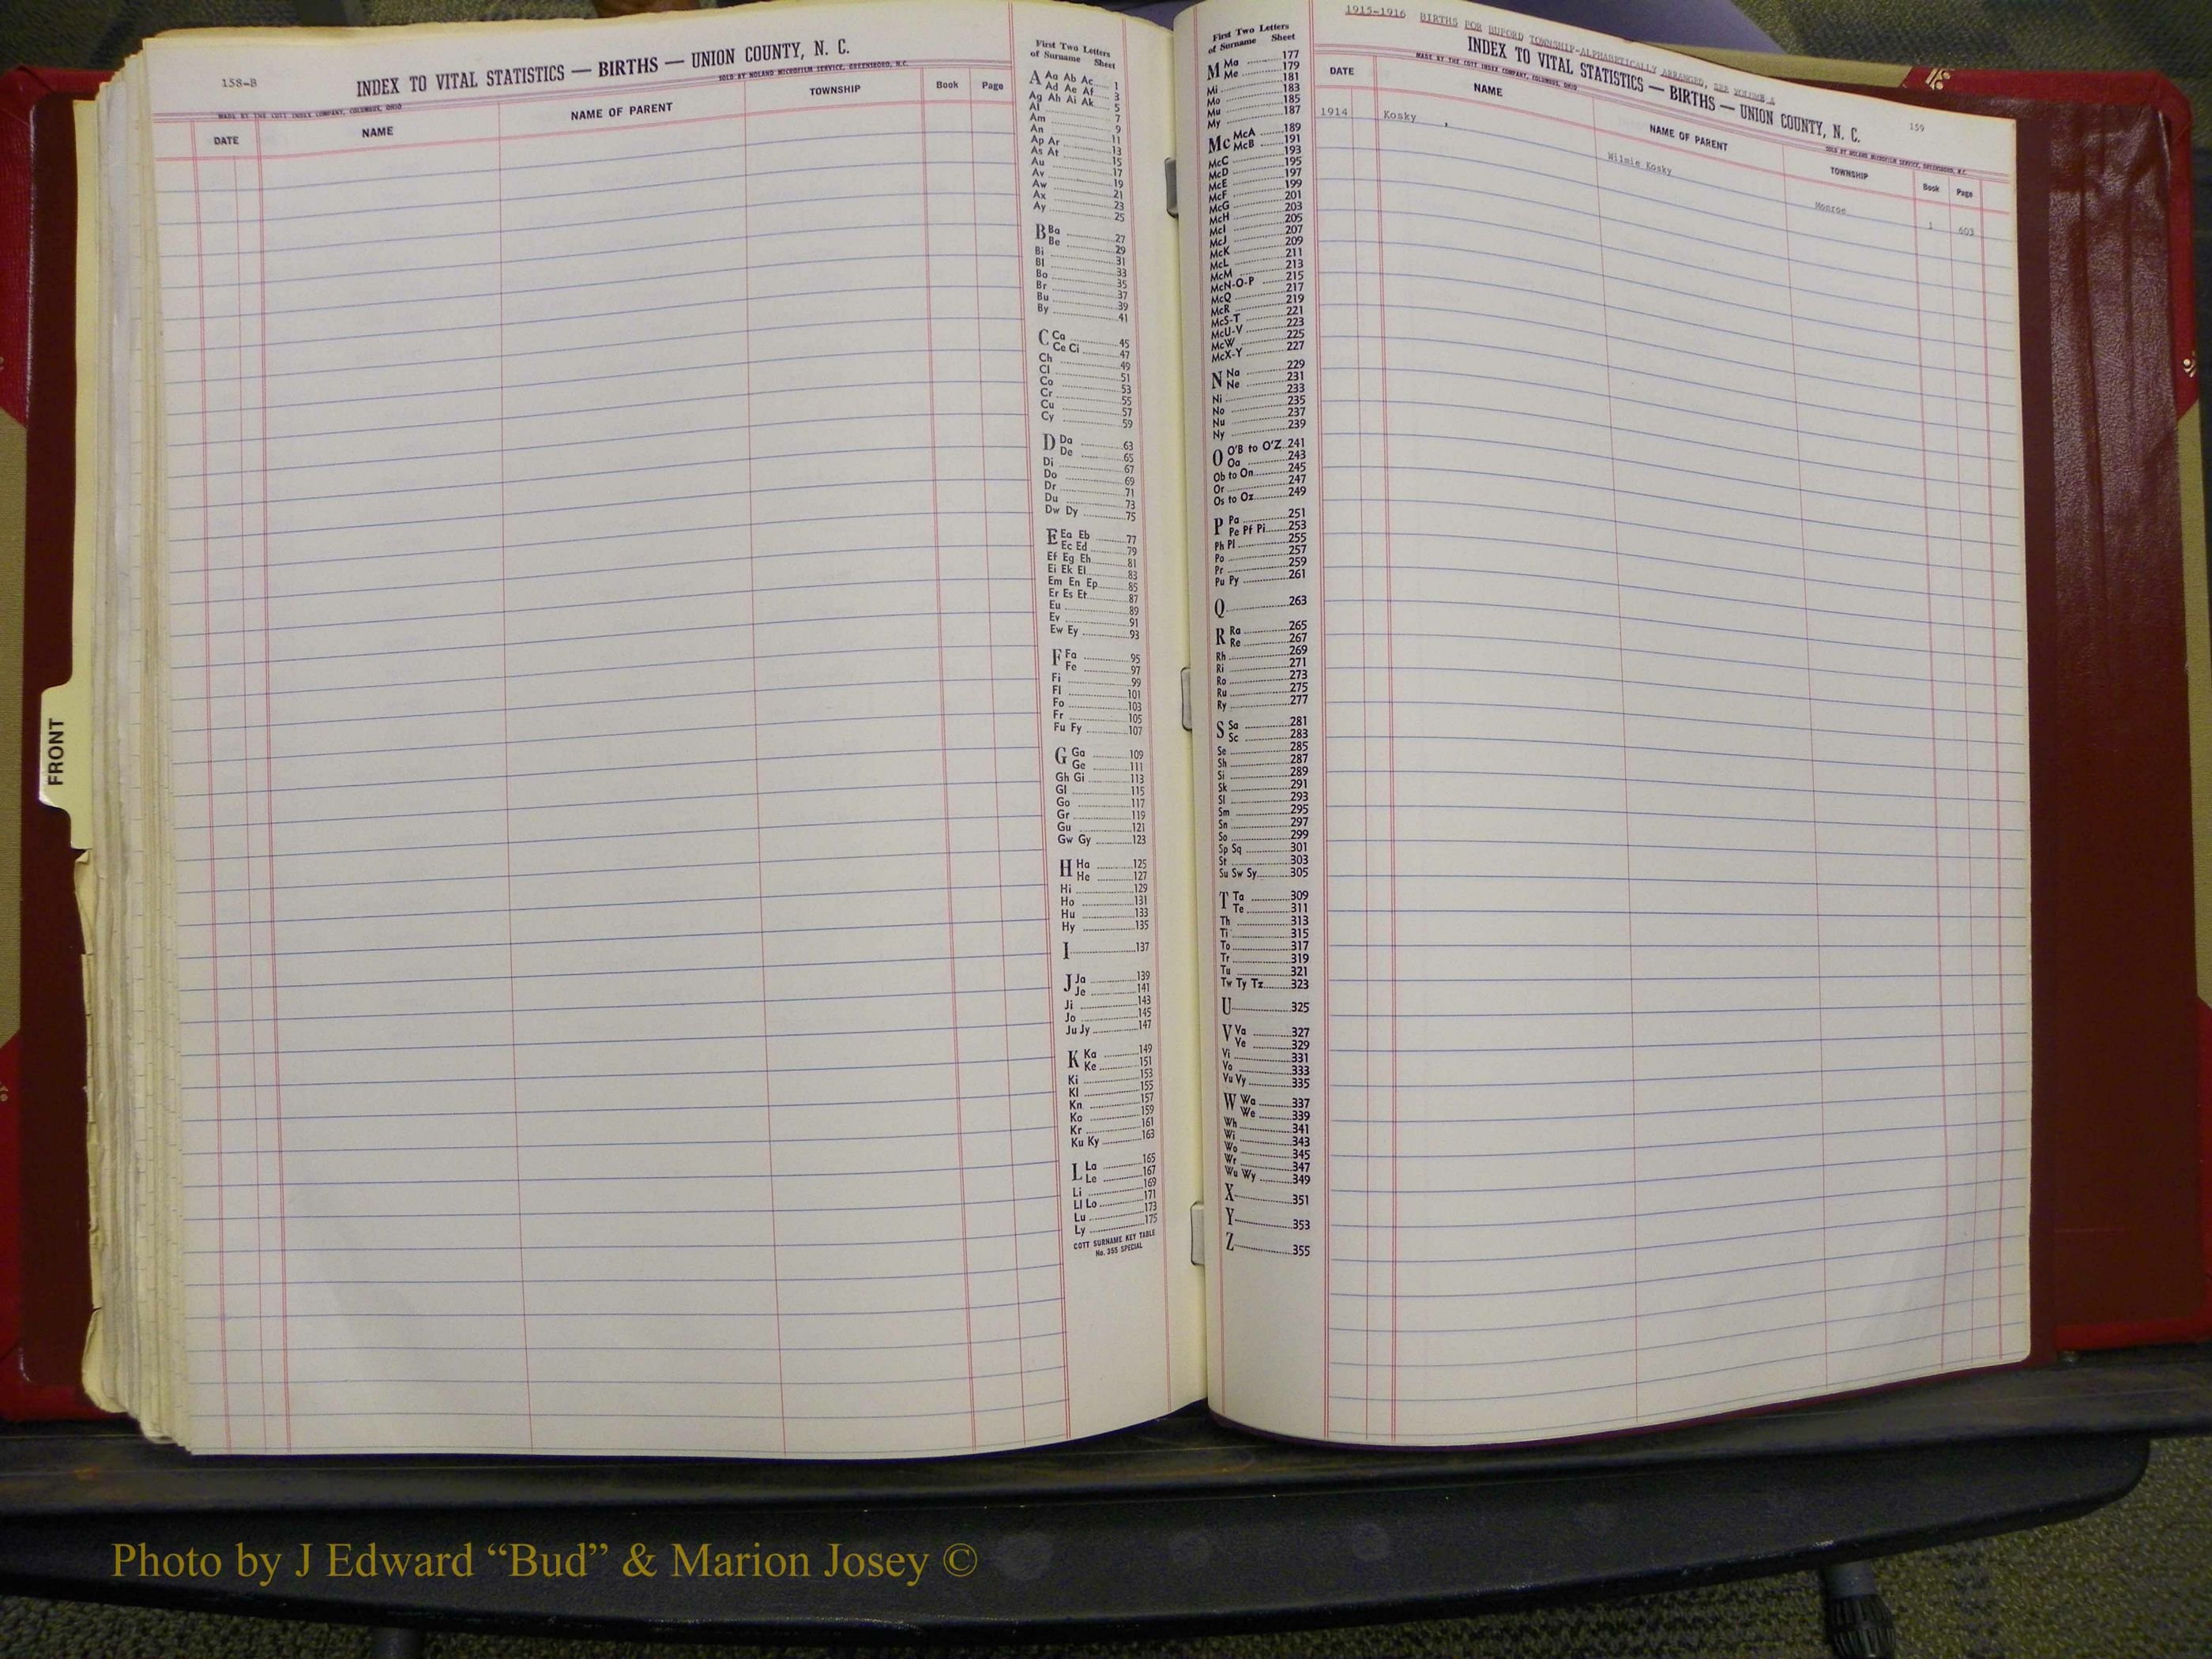 158-B
INDEX TO VITAL STATISTICS — BIRTHS — UNION COUNTY, N. C.
MADE BY THE COTT INDEX COMPANY, COLUMBUS, OHIO
SOLD BY NOLAND MICROFILM SERVICE, GREENSBORO, N.C.
DATE NAME NAME OF PARENT TOWNSHIP Book Page
First Two Letters
of Surname Sheet
A Aa Ab Ac 1
Ad Ae Af 3
Ag Ah Ai Ak 5
Al 7
Am 9
An 11
Ap Ar 13
As At 15
Au 17
Av 19
Aw 21
Ax 23
Ay 25
B Ba 27
Be 29
Bi 31
Bl 33
Bo 35
Br 37
Bu 39
By 41
C Ca 45
Ce Ci 47
Ch 49
Cl 51
Co 53
Cr 55
Cu 57
Cy 59
D Da 63
De 65
Di 67
Do 69
Dr 71
Du 73
Dw Dy 75
E Ea Eb 77
Ec Ed 79
Ef Eg Eh 81
Ei Ek El 83
Em En Ep 85
Er Es Et 87
Eu 89
Ev 91
Ew Ey 93
F Fa 95
Fe 97
Fi 99
Fl 101
Fo 103
Fr 105
Fu Fy 107
G Ga 109
Ge 111
Gh Gi 113
Gl 115
Go 117
Gr 119
Gu 121
Gw Gy 123
H Ha 125
He 127
Hi 129
Ho 131
Hu 133
Hy 135
I 137
J Ja 139
Je 141
Ji 143
Jo 145
Ju Jy 147
K Ka 149
Ke 151
Ki 153
Kl 155
Kn 157
Ko 159
Kr 161
Ku Ky 163
L La 165
Le 167
Li 169
Ll Lo 171
Lu 173
Ly 175
COTT SURNAME KEY TABLE
No. 355 SPECIAL
FRONT
First Two Letters
of Surname Sheet
M Ma 177
Me 179
Mi 181
Mo 183
Mu 185
My 187
Mc McA 189
McB 191
McC 193
McD 195
McE 197
McF 199
McG 201
McH 203
McI 205
McJ 207
McK 209
McL 211
McM 213
McN-O-P 215
McQ 217
McR 219
McS-T 221
McU-V 223
McW 225
McX-Y 227
N Na 229
Ne 231
Ni 233
No 235
Nu 237
Ny 239
O O'B to O'Z 241
Oa 243
Ob to On 245
Or 247
Os to Oz 249
P Pa 251
Pe Pf Pi 253
Ph Pl 255
Po 257
Pr 259
Pu Py 261
Q 263
R Ra 265
Re 267
Rh 269
Ri 271
Ro 273
Ru 275
Ry 277
S Sa 281
Sc 283
Se 285
Sh 287
Si 289
Sk 291
Sl 293
Sm 295
Sn 297
So 299
Sp Sq 301
St 303
Su Sw Sy 305
T Ta 309
Te 311
Th 313
Ti 315
To 317
Tr 319
Tu 321
Tw Ty Tz 323
U 325
V Va 327
Ve 329
Vi 331
Vo 333
Vu Vy 335
W Wa 337
We 339
Wh 341
Wi 343
Wo 345
Wr 347
Wu Wy 349
X 351
Y 353
Z 355
1915-1916 BIRTHS FOR BUFORD TOWNSHIP-ALPHABETICALLY ARRANGED, SEE VOLUME
INDEX TO VITAL STATISTICS — BIRTHS — UNION COUNTY, N. C.
159
MADE BY THE COTT INDEX COMPANY, COLUMBUS, OHIO
SOLD BY NOLAND MICROFILM SERVICE, GREENSBORO, N.C.
DATE NAME NAME OF PARENT TOWNSHIP Book Page
1914 Kosky , Wilmie Kosky Monroe 1 603
Photo by J Edward “Bud” & Marion Josey ©